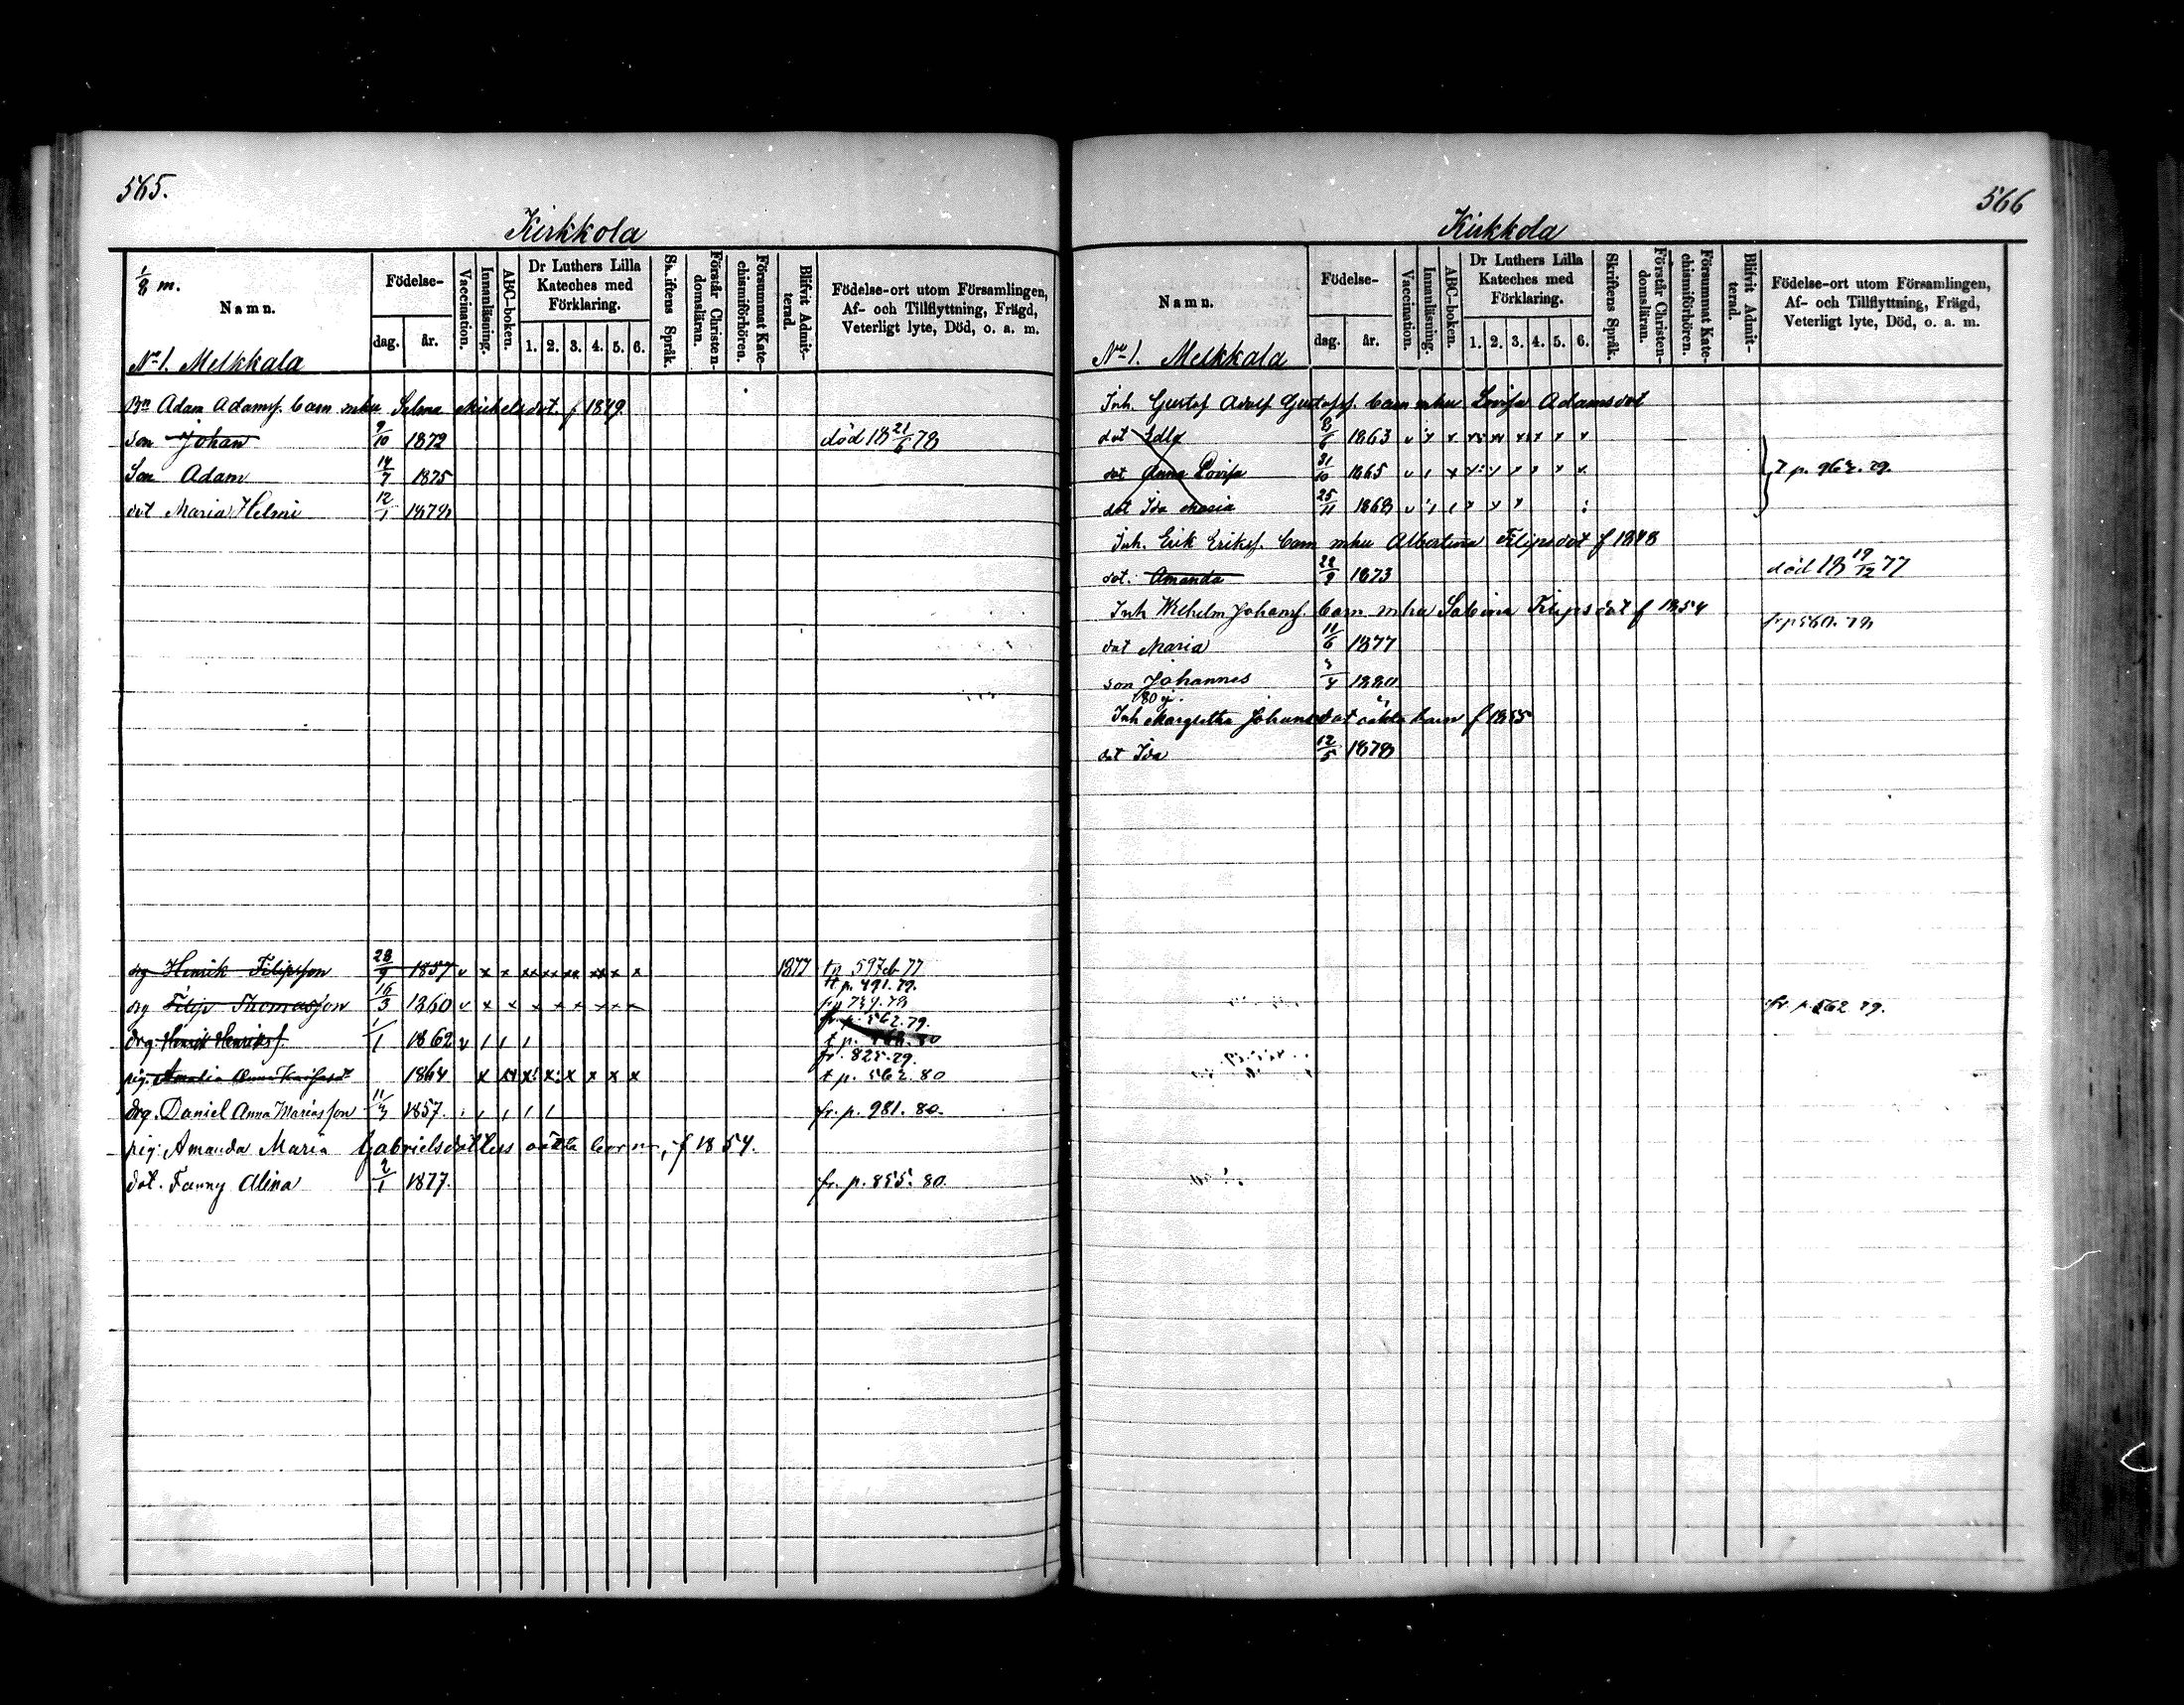 565.
Kirkkola
1/8 m.
Namn.
Födelse-
dag.
år.
Vaccination.
Innanläsning.
ABC-boken.
Dr Luthers Lilla
Kateches med
Förklaring.
1. 2. 3. 4. 5. 6.
Skriftens Språk.
Förstår Christen-
domsläran.
Försummat Kate-
chismiförhören.
Blifvit Admit-
terad.
Födelse-ort utom Församlingen,
Af- och Tillflyttning, Frägd,
Veterligt lyte, Död, o. a. m.
No 1. Melkkala
Bn Adam Adamss. barn mhu Selma Michelsdot. f 1849
son Johan 9/10 1872 död 18 21/6 78
Son Adam 14/7 1875
dot Maria Helmi 12/1 1878
drg Henrik Filipsson 28/9 1857 v x x xx xx xx xx x x 1877 t p 597 78
tt p. 491. 79.
drg Filip Thomasson 16/3 1860 v x x x x x x x x
fr. p. 562. 79.
drg. Henrik Henrikss. 1/1 1862 v / / /
fr. 825. 79.
pig. Amalia 1864 x x x x x x t p. 562. 80
drg. Daniel Anna Mariasson 11/3 1857. fr. p. 981. 80.
pig. Amanda Maria Gabrielsdotters oäkta barn, f 1854.
dot. Fanny Alina 2/1 1877. fr. p. 855. 80.
566
Kirkkola
Namn.
Födelse-
dag.
år.
Vaccination.
Innanläsning.
ABC-boken.
Dr Luthers Lilla
Kateches med
Förklaring.
1. 2. 3. 4. 5. 6.
Skriftens Språk.
Förstår Christen-
domsläran.
Försummat Kate-
chismiförhören.
Blifvit Admit-
terad.
Födelse-ort utom Församlingen,
Af- och Tillflyttning, Frägd,
Veterligt lyte, Död, o. a. m.
No 1. Melkkala
Inh. Gustaf Adolf Gustafss. barn mhu Lovisa Adamsdot
dot 8/6 1863
dot Anna Lovisa 31/10 1865 t. p. 962. 79.
dot Ida Maria 25/11 1868
Inh. Erik Erikss. barn mhu Albertina Filipsdot f 1848
dot. Amanda 22/9 1873 död 18 19/12 77
Inh Wilhelm Johanss. barn mhu Sabina Filipsdot f 1854
fr p 560. 78
dot Maria 11/6 1877
son Johannes 3/4 1880
Inh Margretha Johansdot oäkta barn f 1855
dot Ida 12/5 1878
fr. p. 562 79.